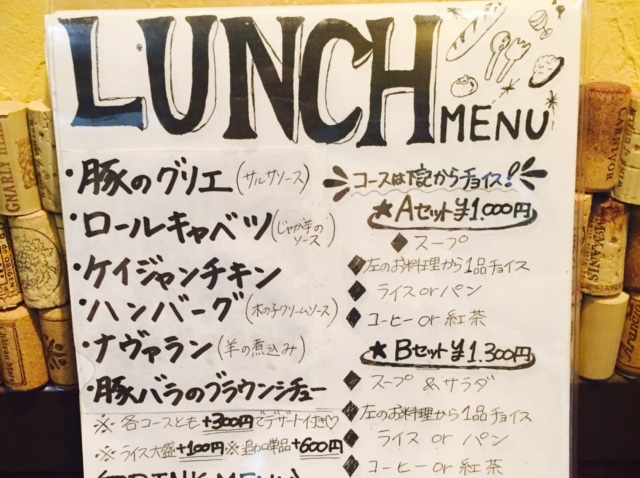 LUNCH
MENU
・豚のグリエ(サルサソース)
・ロールキャベツ(じゃが芋のソース)
・ケイジャンチキン
・ハンバーグ(木の子クリームソース)
・ナヴァラン(羊の煮込み)
・豚バラのブラウンシチュー
※各コースとも+300円でデザート付き♡
※ライス大盛+100円※追加単品+600円
コースは下記からチョイス!
★Aセット¥1.000円
◆スープ
◆左のお料理から1品チョイス
◆ライスorパン
◆コーヒーor紅茶
★Bセット¥1.300円
◆スープ&サラダ
◆左のお料理から1品チョイス
◆ライスorパン
◆コーヒーor紅茶
DRINK MENU
GNARLY HE